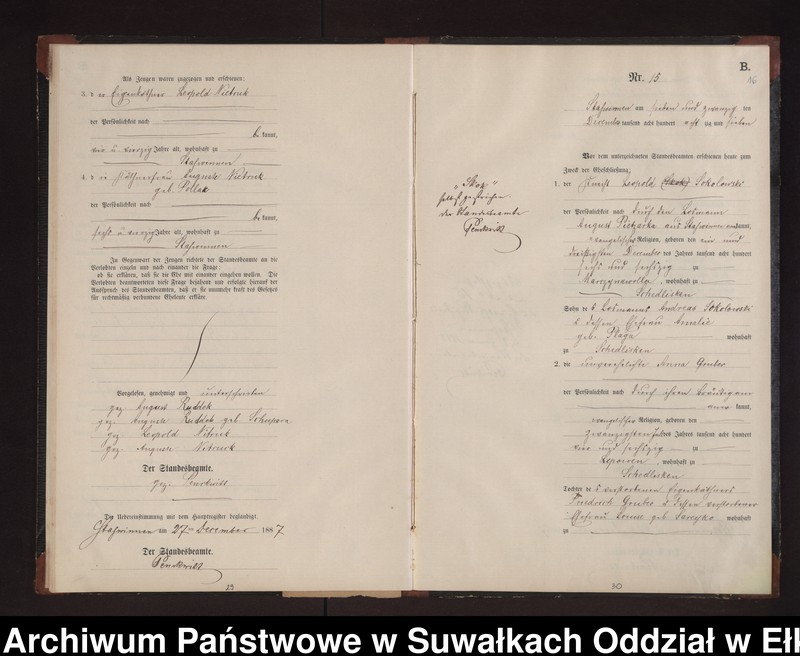 Als Zeugen waren zugezogen und erschienen:
3. der Eigenkäthner Leopold Nietruck
der Persönlichkeit nach
kannt,
vier u. vierzig Jahre alt, wohnhaft zu
Staswinnen
4. die Käthnerfrau Auguste Nietruck
geb.
der Persönlichkeit nach
kannt,
sechs u vierzig Jahre alt, wohnhaft zu
Staswinnen
In Gegenwart der Zeugen richtete der Standesbeamte an die
Verlobten einzeln und nach einander die Frage:
ob sie erklären, daß sie die Ehe mit einander eingehen wollen. Die
Verlobten beantworteten diese Frage bejahend und erfolgte hierauf der
Ausspruch des Standesbeamten, daß er sie nunmehr kraft des Gesetzes
für rechtmäßig verbundene Eheleute erkläre.
Vorgelesen, genehmigt und unterschrieben
gez. August Ruddek
gez. Auguste Ruddek geb
gez Leopold Nitruck
gez. Auguste Nitruck
Der Standesbeamte.
gez.
Die Uebereinstimmung mit dem Hauptregister beglaubigt
Staswinnen am 27ten December 1887.
Der Standesbeamte.
29
B.
Nr. 15
16
Staswinnen am sieben und zwanzig ten
December tausend acht hundert acht zig und sieben
Vor dem unterzeichneten Standesbeamten erschienen heute zum
Zweck der Eheschließung:
1. der Knecht Leopold Sokolowski
der Persönlichkeit nach durch den Losmann
August aus Staswinnen kannt,
evangelischer Religion, geboren den ein und
dreißigsten December des Jahres tausend acht hundert
sechs und sechszig zu
, wohnhaft zu
Schedlisken
Sohn des Losmanns Andreas Sokolowski
u dessen Ehefrau Amelie
geb. wohnhaft
zu Schedlisken
2. die unverehelichte Anna
der Persönlichkeit nach durch ihren Bräutigam
kannt,
evangelischer Religion, geboren den
zwanzigsten des Jahres tausend acht hundert
vier und sechszig zu
, wohnhaft zu
Schedlisken
Tochter des verstorbenen Eigenkäthners
Friedrich u dessen verstorbener
Ehefrau Louise geb wohnhaft
zu
30
selbst gestrichen
der Standesbeamte
Archiwum Państwowe w Suwałkach Oddział w Ełk